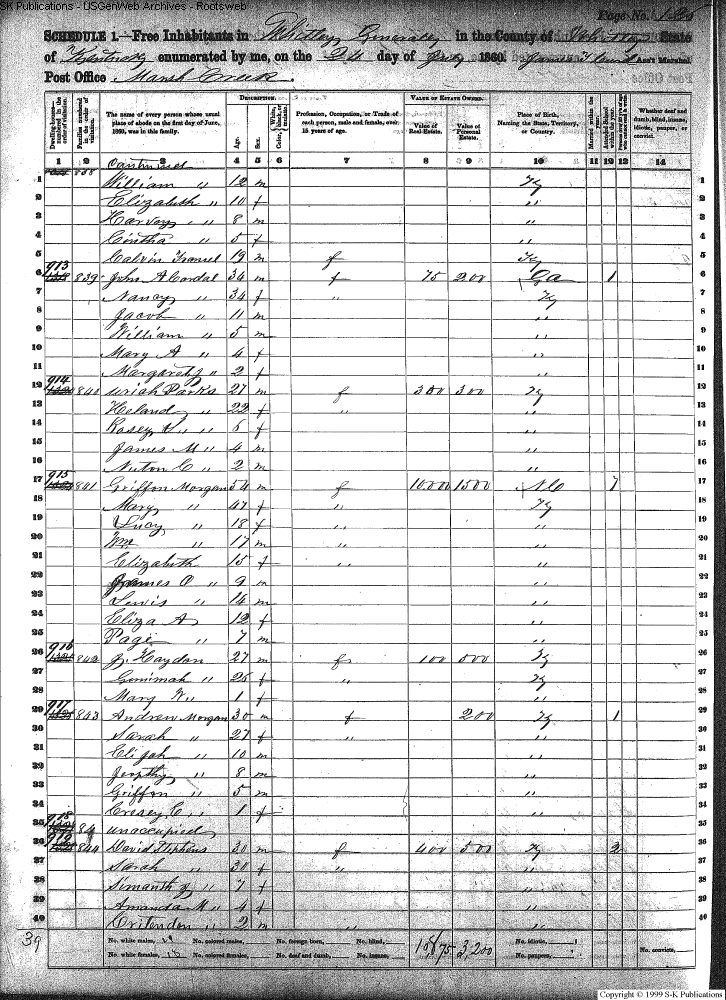 SK Publications - USGenWeb Archives - Rootsweb
Page No. 126
SCHEDULE 1.—Free Inhabitants in Whitley Generaley in the County of Whitley State
of Kentucky enumerated by me, on the 24 day of July 1860. James Ass't Marshal.
Post Office Marsh Creek.
Dwelling-houses—numbered in the order of visitation.
Families numbered in the order of visitation.
The name of every person whose usual place of abode on the first day of June, 1860, was in this family.
DESCRIPTION.
Age.
Sex.
Color, White, black, or mulatto.
Profession, Occupation, or Trade of each person, male and female, over 15 years of age.
VALUE OF ESTATE OWNED.
Value of Real Estate.
Value of Personal Estate.
Place of Birth, Naming the State, Territory, or Country.
Married within the year.
Attended School within the year.
Whether deaf and dumb, blind, insane, idiotic, pauper, or convict.
1 2 3 4 5 6 7 8 9 10 11 12 13 14
838 Continued
1 William " 12 m Ky 1
2 Elizabeth " 10 f " 2
3 Harvey " 8 m " 3
4 Cintha " 5 f " 4
5 Calvin 19 m f Ky 5
6 913 839 John A Cordal 34 m f 75 200 Ga 1 6
7 Nancy " 34 f " Ky 7
8 Jacob " 11 m " 8
9 William " 5 m " 9
10 Mary A " 4 f " 10
11 Margaret J " 2 f " 11
12 914 840 Uriah Parks 27 m f 300 300 Ky 12
13 " 22 f " " 13
14 " 6 f " 14
15 James M " 4 m " 15
16 Nuton C " 2 m " 16
17 915 841 Griffon Morgan 54 m f 10000 1500 NC 7 17
18 Mary " 47 f " Ky 18
19 Lucy " 18 f " " 19
20 Wm " 17 m " " 20
21 Elizabeth 15 f " " 21
22 James O " 9 m " 22
23 Lewis " 14 m " 23
24 Eliza A " 12 f " 24
25 Page " 7 m " 25
26 916 842 J. Haydon 27 m f 100 500 Ky 26
27 Gemimah " 26 f " Ky 27
28 Mary W " 1 f " 28
29 917 843 Andrew Morgan 30 m f 200 Ky 1 29
30 Sarah " 27 f " " 30
31 Elijah " 10 m " 31
32 " 8 m " 32
33 Griffon " 5 m " 33
34 Cresey C. " 1 f " 34
35 918 84 unoccupied 35
36 919 844 David Stephens 30 m f 400 500 Ky 2 36
37 Sarah " 30 f " " 37
38 Simanth " 7 f " 38
39 Amanda M " 4 f " 39
40 Critendon " 2 m " 40
39
No. white males, No. colored males, No. foreign born, No. blind, No. idiotic,
No. white females, No. colored females, No. deaf and dumb, No. insane, No. paupers, No. convicts,
3,200
Copyright © 1999 S-K Publications